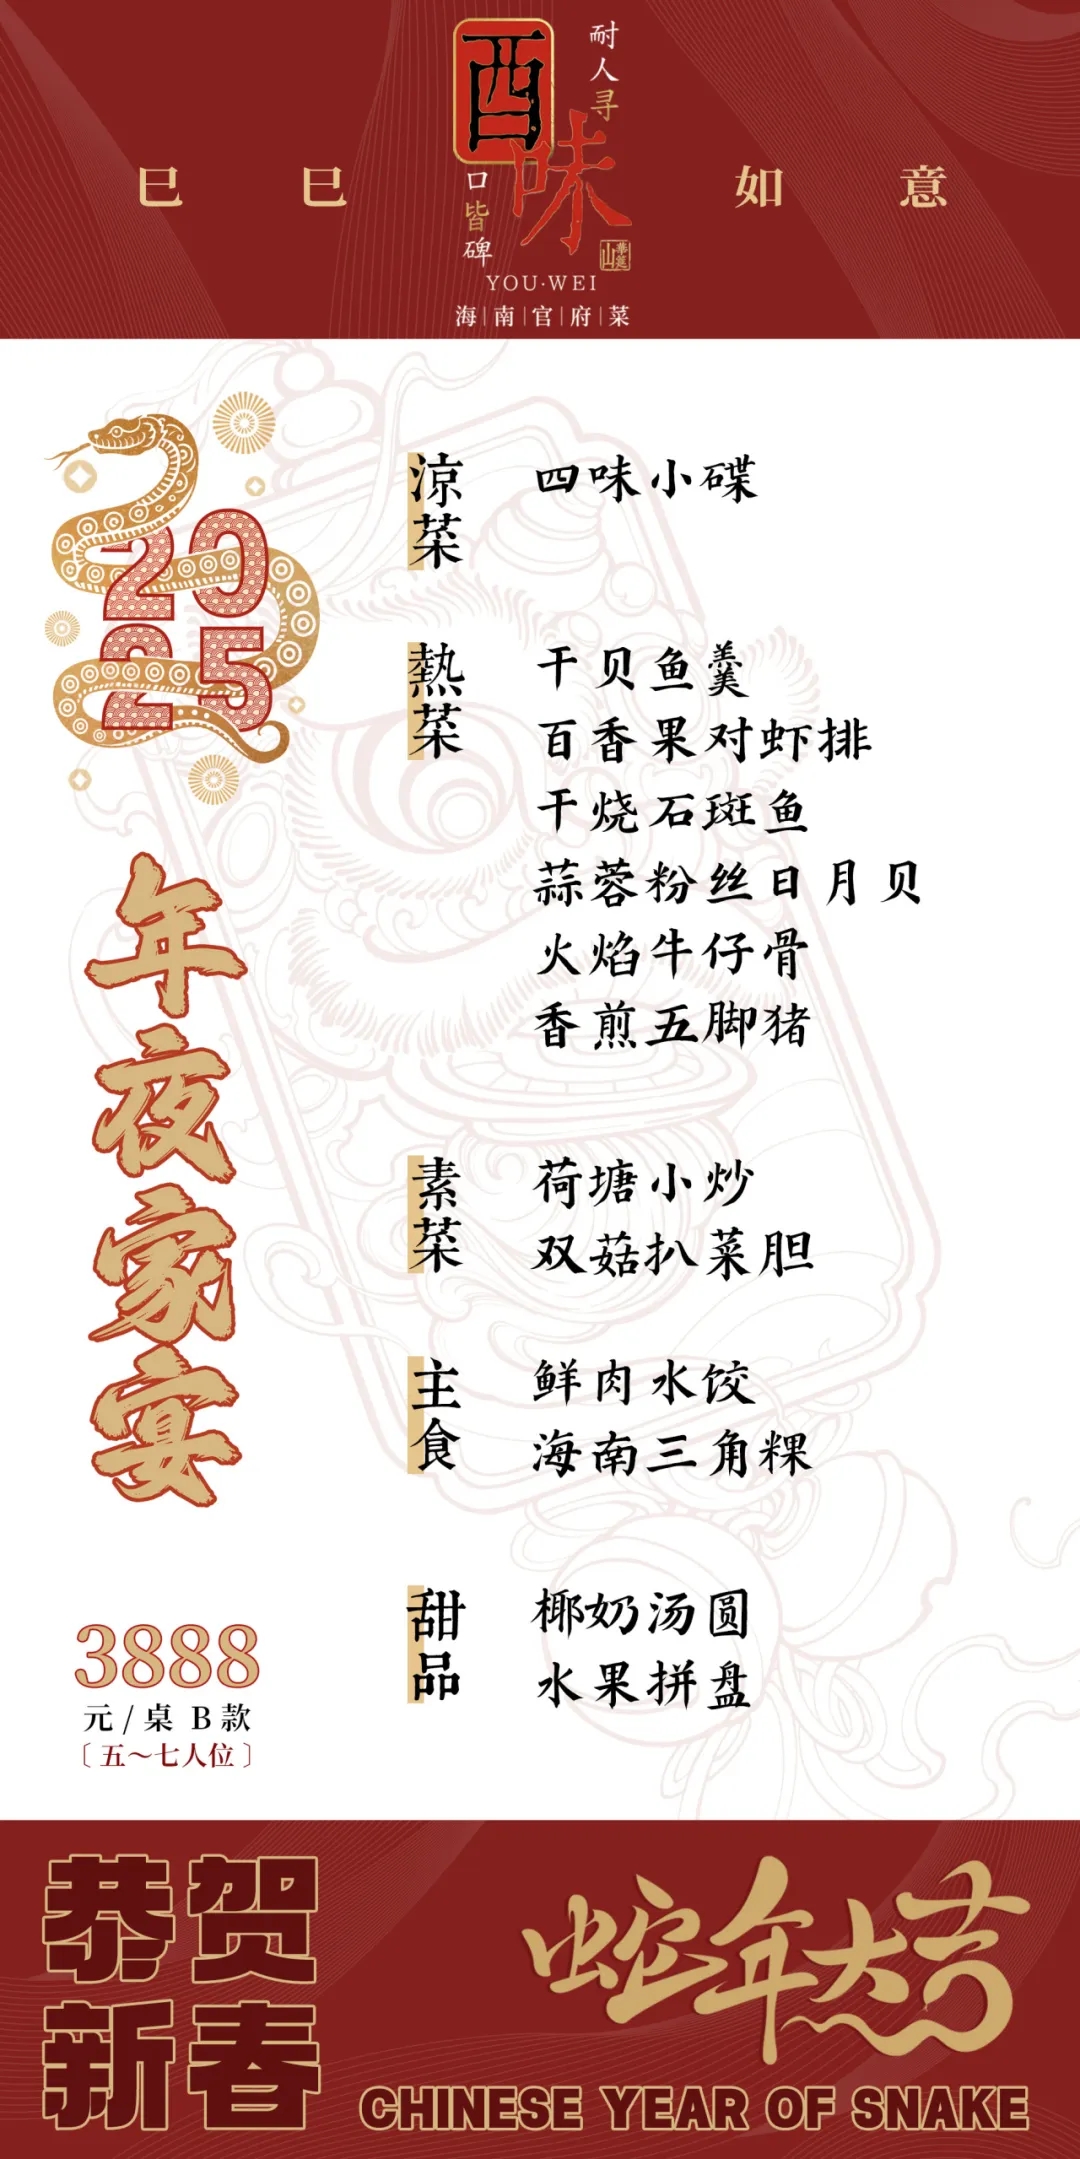 巳巳如意
耐人寻
酉味
口皆碑
華筵山
YOU·WEI
海|南|官|府|菜
2025
年夜家宴
涼菜
四味小碟
熱菜
干贝鱼羹
百香果对虾排
干烧石斑鱼
蒜蓉粉丝日月贝
火焰牛仔骨
香煎五脚猪
素菜
荷塘小炒
双菇扒菜胆
主食
鲜肉水饺
海南三角粿
甜品
椰奶汤圆
水果拼盘
3888
元/桌 B款
〔五~七人位〕
恭贺
新春
蛇年大吉
CHINESE YEAR OF SNAKE